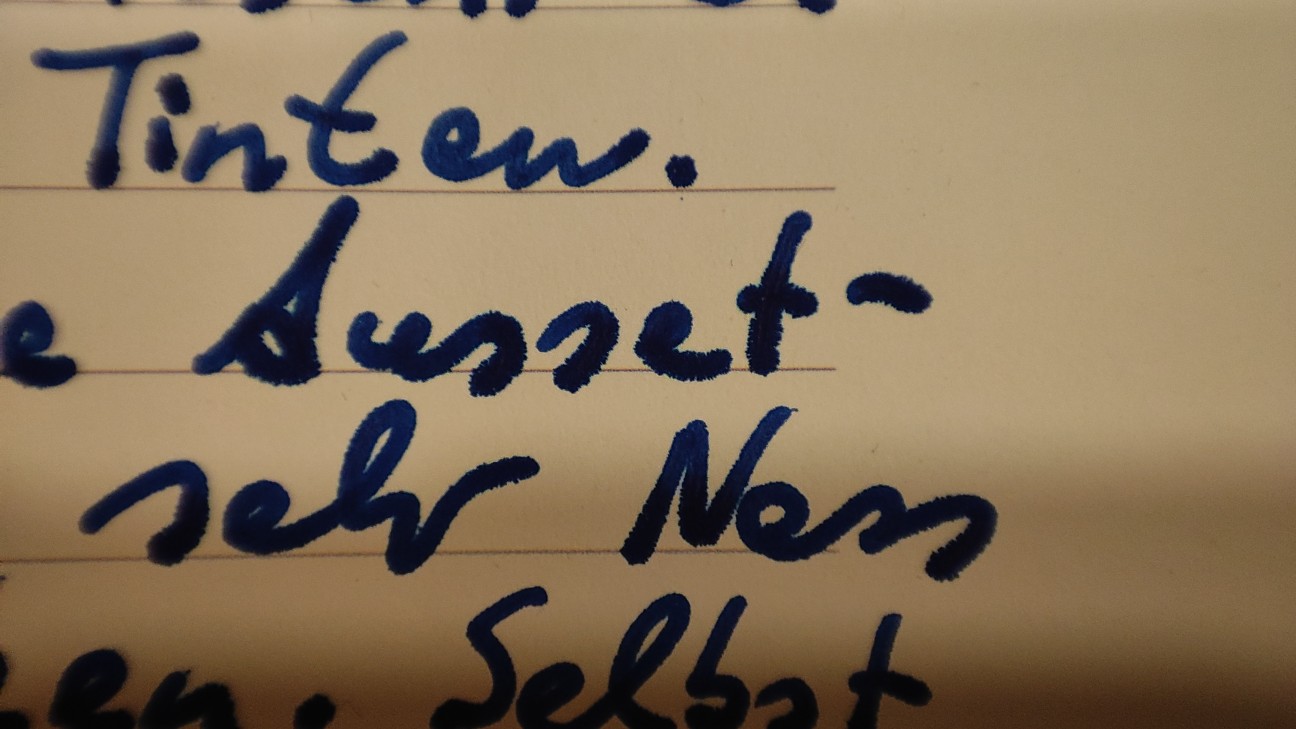 Tinten.
e Ausset-
sehr Nass
en. Selbst